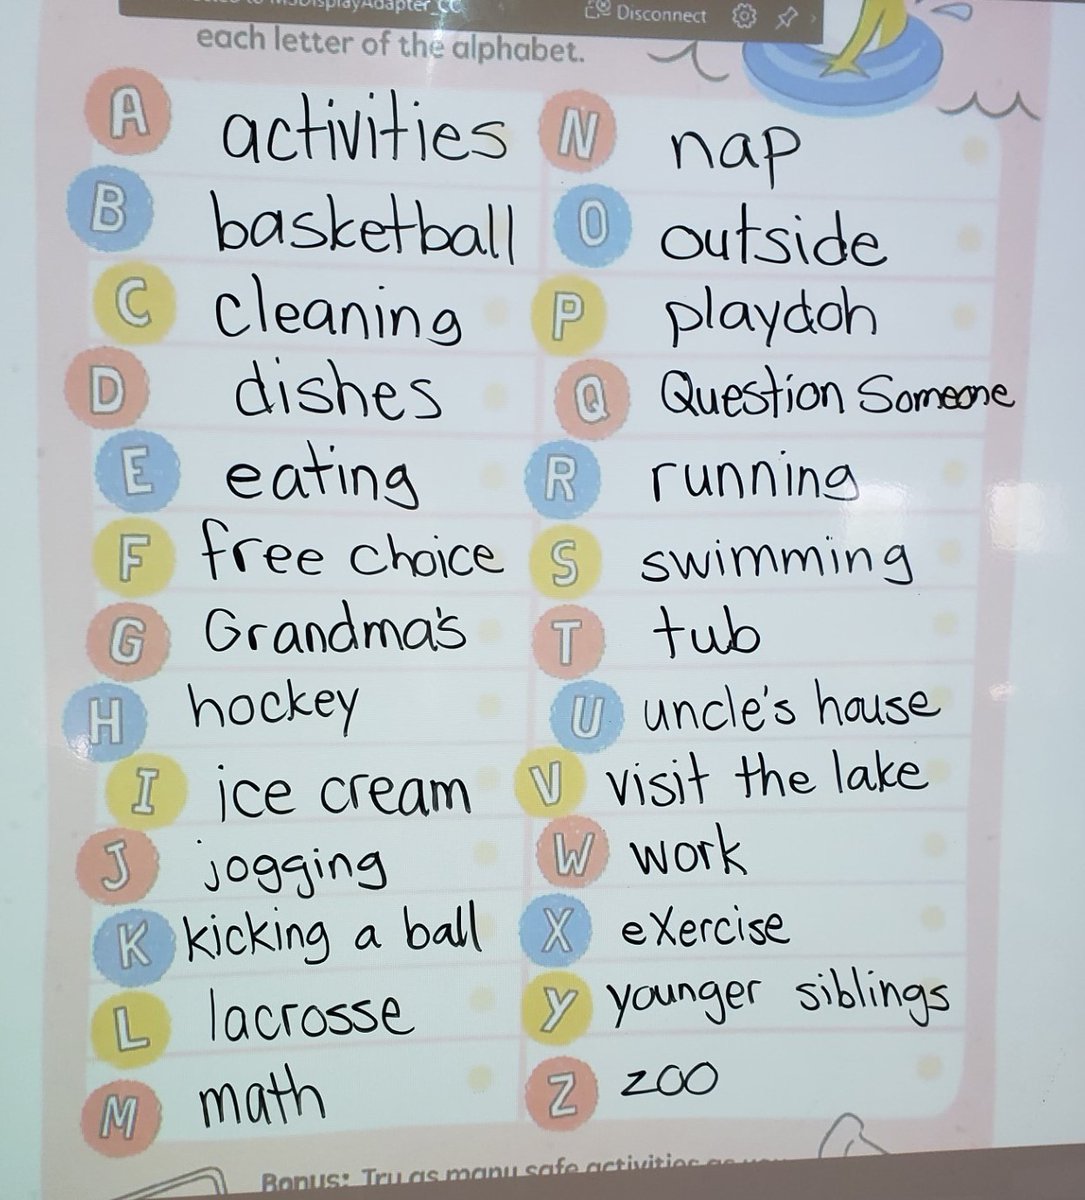 DisplayAdapter_CC
Disconnect
each letter of the alphabet.
A activities
B basketball
C cleaning
D dishes
E eating
F free choice
G Grandma's
H hockey
I ice cream
J jogging
K kicking a ball
L lacrosse
M math
N nap
O outside
P playdoh
Q Question Someone
R running
S swimming
T tub
U uncle's house
V visit the lake
W work
X eXercise
Y younger siblings
Z zoo
Bonus: Try as many safe activities as